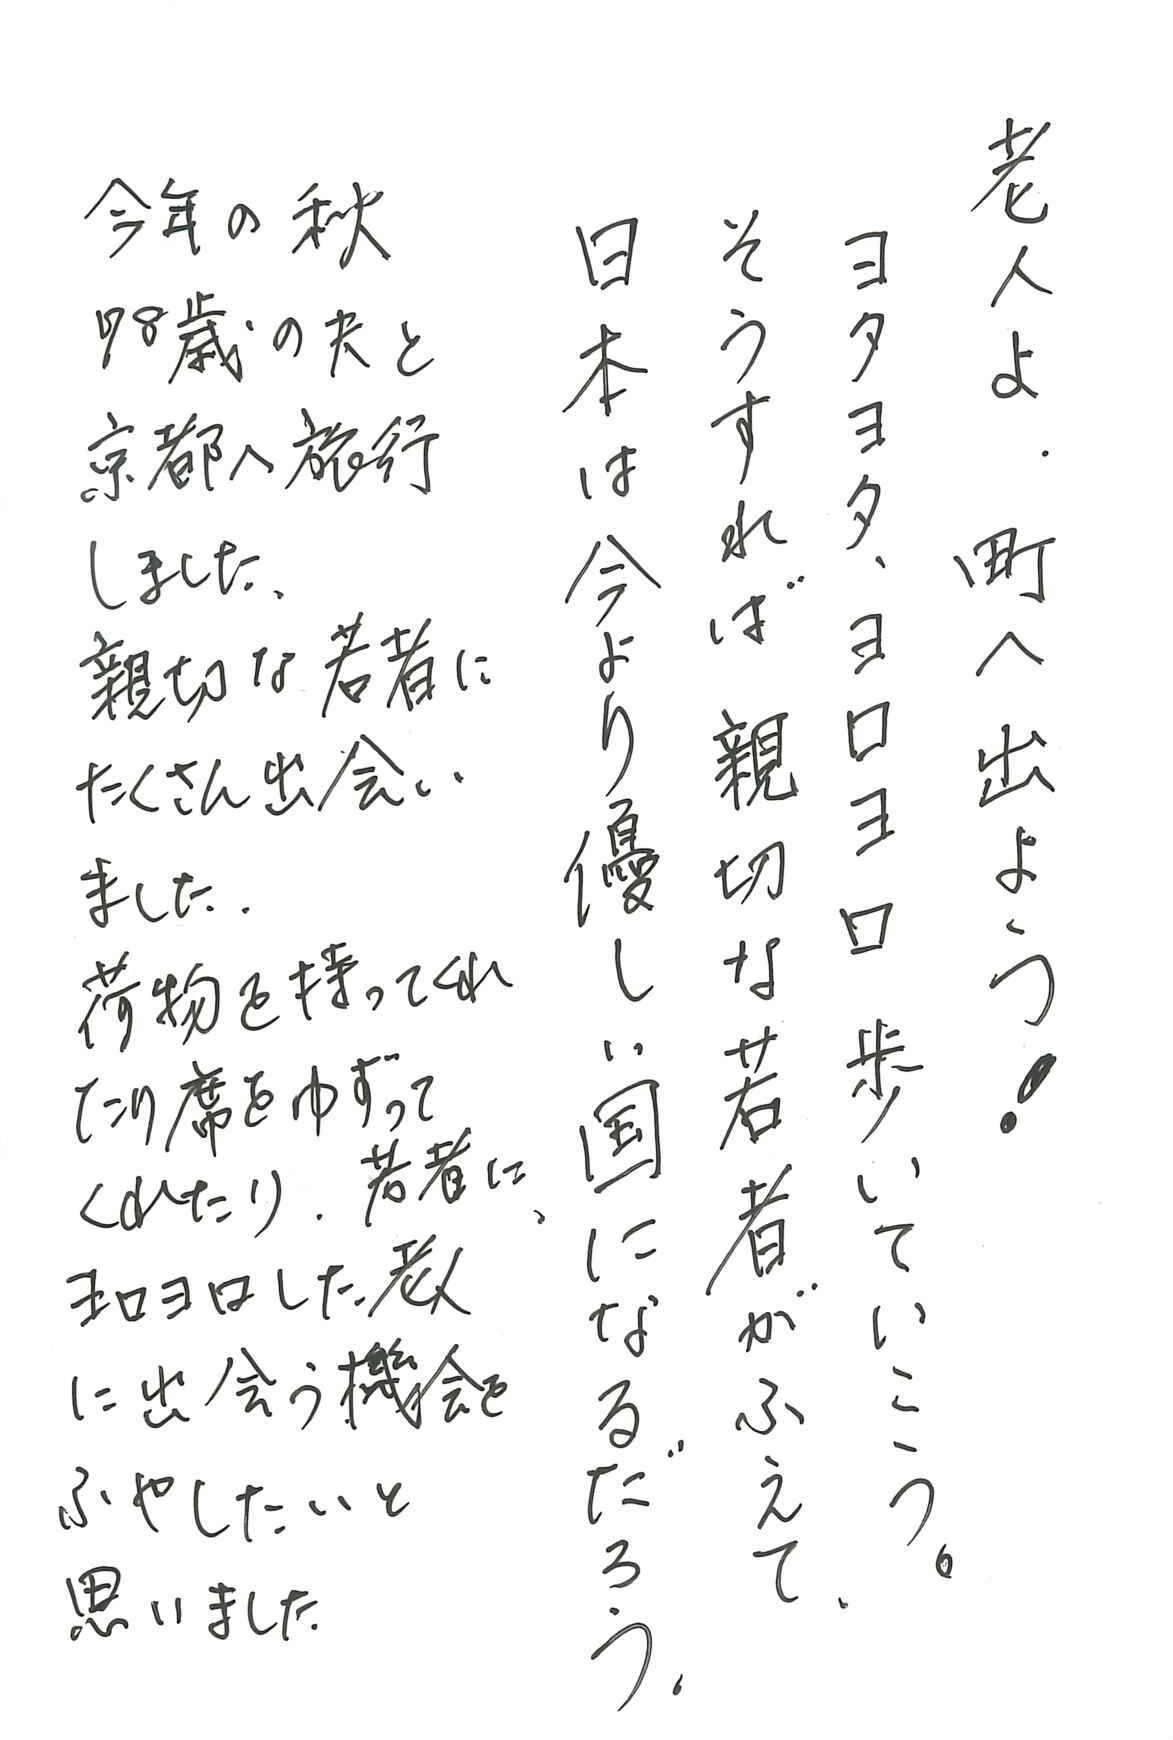 老人よ、町へ出よう!
ヨタヨタ、ヨロヨロ歩いていこう。
そうすれば親切な若者がふえて、
日本は今より優しい国になるだろう。
今年の秋
78歳の夫と
京都へ旅行
しました、
親切な若者に
たくさん出会い
ました.
荷物を持ってくれ
たり席をゆずって
くれたり、若者に、
ヨロヨロした老人
に出会う機会を
ふやしたいと
思いました